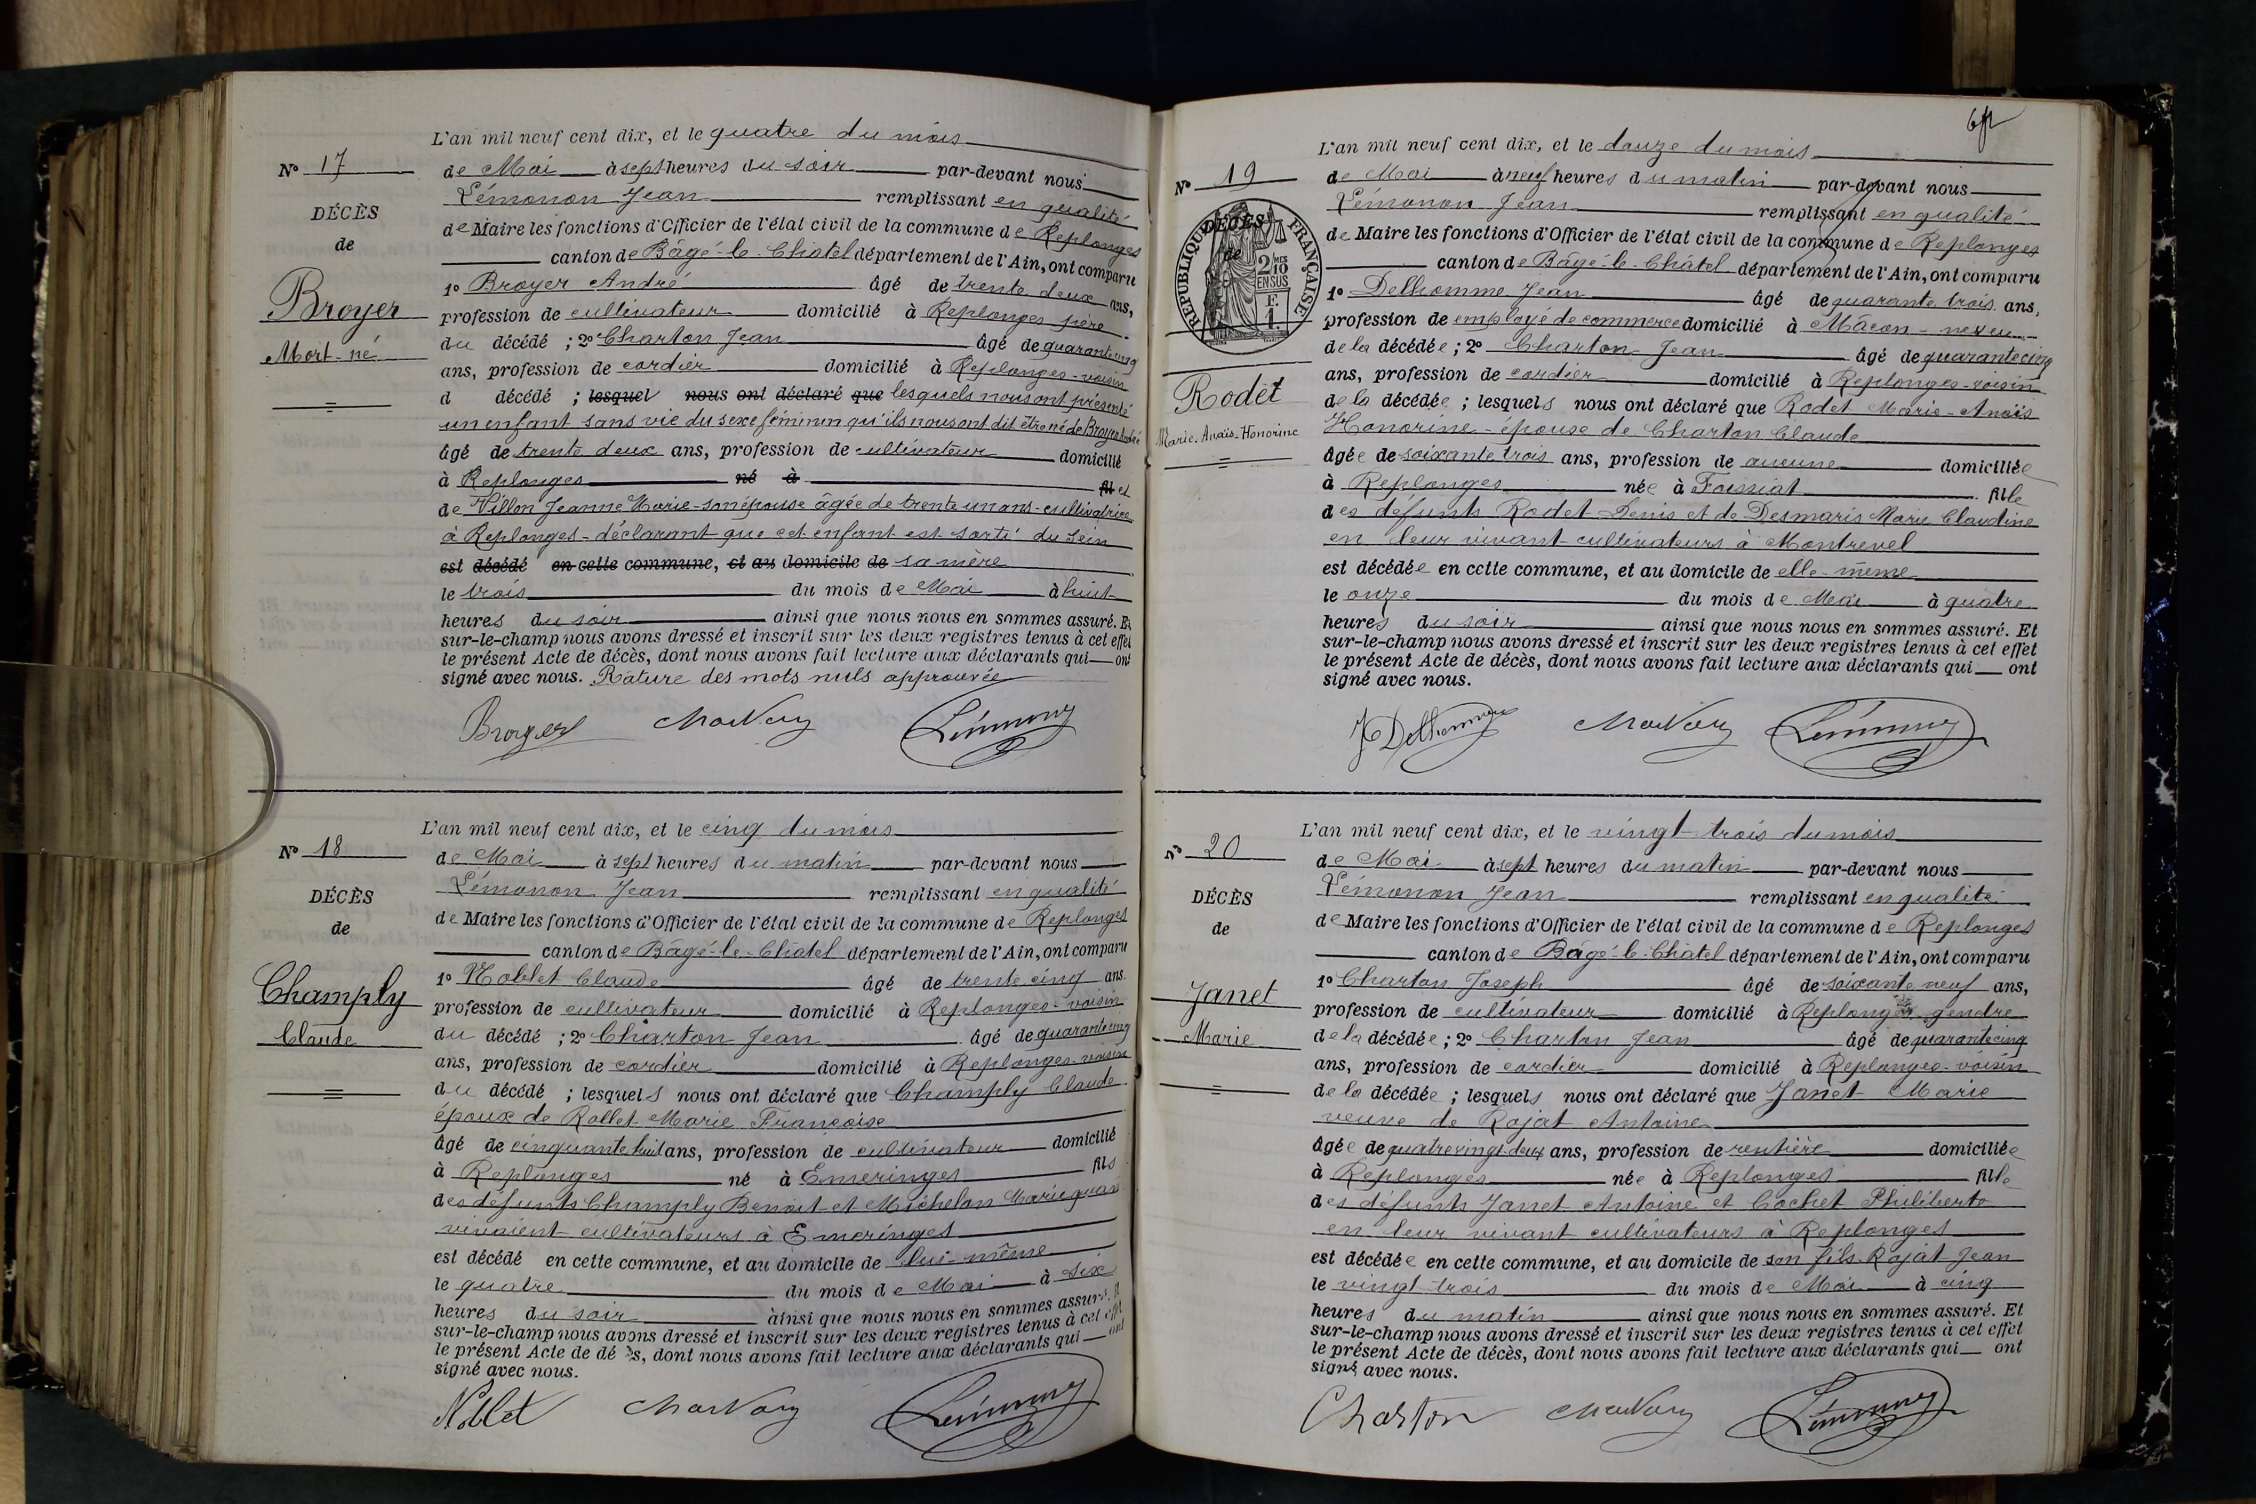 L'an mil neuf cent dix, et le quatre du mois
Nº 17
de Mai à sept heures du soir par-devant nous
Lémonon Jean remplissant en qualité
DÉCÈS
de Maire les fonctions d'Officier de l'état civil de la commune de Replonges
de
canton de Bâgé-le-Châtel département de l'Ain, ont comparu
1º Broyer André âgé de trente deux ans,
Broyer
profession de cultivateur domicilié à Replonges père
du décédé ; 2º Charton Jean âgé de quarante cinq
Mort-né
ans, profession de cordier domicilié à Replonges - voisin
d décédé ; lesquel nous ont déclaré que lesquels nous ont présenté
un enfant sans vie du sexe féminin qu'ils nous ont dit être né de Broyer André
âgé de trente deux ans, profession de cultivateur domicilié
à Replonges né à fil et
de Villon Jeanne Marie - son épouse âgée de trente un ans - cultivatrice
à Replonges - déclarant que cet enfant est sorti du sein
est décédé en cette commune, et au domicile de sa mère
le trois du mois de Mai à huit
heures du soir ainsi que nous nous en sommes assuré. Et
sur-le-champ nous avons dressé et inscrit sur les deux registres tenus à cet effet
le présent Acte de décès, dont nous avons fait lecture aux déclarants qui ont
signé avec nous. Rature des mots nuls approuvée
Broyer Charton Lémonon
L'an mil neuf cent dix, et le cinq du mois
Nº 18
de Mai à sept heures du matin par-devant nous
Lémonon Jean remplissant en qualité
DÉCÈS
de Maire les fonctions d'Officier de l'état civil de la commune de Replonges
de
canton de Bâgé-le-Châtel département de l'Ain, ont comparu
1º Noblet Claude âgé de trente cinq ans
Champly
profession de cultivateur domicilié à Replonges - voisin
Claude
du décédé ; 2º Charton Jean âgé de quarante cinq
ans, profession de cordier domicilié à Replonges - voisin
du décédé ; lesquels nous ont déclaré que Champly Claude
époux de Rollet Marie Françoise
âgé de cinquante huit ans, profession de cultivateur domicilié
à Replonges né à Emeringes fils
des défunts Champly Benoit et Michelon Marie quand
vivaient cultivateurs à Emeringes
est décédé en cette commune, et au domicile de lui-même
le quatre du mois de Mai à six
heures du soir ainsi que nous nous en sommes assuré. Et
sur-le-champ nous avons dressé et inscrit sur les deux registres tenus à cet effet
le présent Acte de décès, dont nous avons fait lecture aux déclarants qui ont
signé avec nous.
Noblet Charton Lémonon
L'an mil neuf cent dix, et le douze du mois
Nº 19
de Mai à neuf heures du matin par-devant nous
Lémonon Jean remplissant en qualité
DÉCÈS
RÉPUBLIQUE FRANÇAISE
de Maire les fonctions d'Officier de l'état civil de la commune de Replonges
de
2 MES
10
EN SUS
F.
1.
canton de Bâgé-le-Châtel département de l'Ain, ont comparu
1º Delhomme Jean âgé de quarante trois ans,
profession de employé de commerce domicilié à Mâcon - neveu
de la décédée ; 2º Charton Jean âgé de quarante cinq
Rodet
ans, profession de cordier domicilié à Replonges - voisin
de la décédée ; lesquels nous ont déclaré que Rodet Marie-Anaïs
Marie-Anaïs-Honorine
Honorine - épouse de Charton Claude
âgée de soixante trois ans, profession de aucune domiciliée
à Replonges née à Foissiat fille
des défunts Rodet Denis et de Desmaris Marie Claudine
en leur vivant cultivateurs à Montrevel
est décédée en cette commune, et au domicile de elle-même
le onze du mois de Mai à quatre
heures du soir ainsi que nous nous en sommes assuré. Et
sur-le-champ nous avons dressé et inscrit sur les deux registres tenus à cet effet
le présent Acte de décès, dont nous avons fait lecture aux déclarants qui ont
signé avec nous.
J Delhomme Charton Lémonon
L'an mil neuf cent dix, et le vingt trois du mois
Nº 20
de Mai à sept heures du matin par-devant nous
Lémonon Jean remplissant en qualité
DÉCÈS
de Maire les fonctions d'Officier de l'état civil de la commune de Replonges
de
canton de Bâgé-le-Châtel département de l'Ain, ont comparu
1º Charton Joseph âgé de soixante neuf ans,
Janet
profession de cultivateur domicilié à Replonges gendre
Marie
de la décédée ; 2º Charton Jean âgé de quarante cinq
ans, profession de cordier domicilié à Replonges - voisin
de la décédée ; lesquels nous ont déclaré que Janet Marie
veuve de Rajat Antoine
âgée de quatre vingt deux ans, profession de rentière domiciliée
à Replonges née à Replonges fille
des défunts Janet Antoine et Cochet Philiberte
en leur vivant cultivateurs à Replonges
est décédée en cette commune, et au domicile de son fils Rajat Jean
le vingt trois du mois de Mai à cinq
heures du matin ainsi que nous nous en sommes assuré. Et
sur-le-champ nous avons dressé et inscrit sur les deux registres tenus à cet effet
le présent Acte de décès, dont nous avons fait lecture aux déclarants qui ont
signé avec nous.
Charton Charton Lémonon